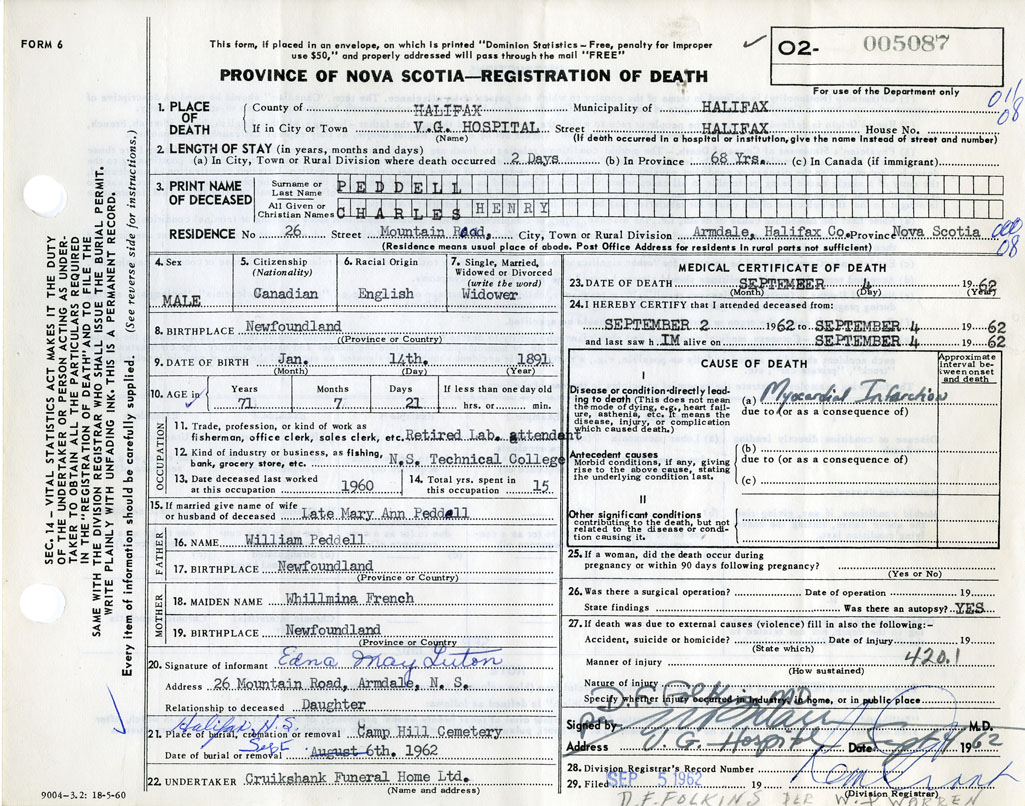 FORM 6
This form, if placed in an envelope, on which is printed "Dominion Statistics – Free, penalty for improper
use $50," and properly addressed will pass through the mail "FREE"
02- 005087
For use of the Department only
PROVINCE OF NOVA SCOTIA—REGISTRATION OF DEATH
01/08
1. PLACE OF DEATH
County of HALIFAX Municipality of HALIFAX
If in City or Town V.G. HOSPITAL Street HALIFAX House No.
(Name) (If death occurred in a hospital or institution, give the name instead of street and number)
2. LENGTH OF STAY (in years, months and days)
(a) In City, Town or Rural Division where death occurred 2 Days (b) In Province 68 Yrs. (c) In Canada (if immigrant)
3. PRINT NAME OF DECEASED
Surname or Last Name PEDDELL
All Given or Christian Names CHARLES HENRY
RESIDENCE No 26 Street Mountain Road, City, Town or Rural Division Armdale, Halifax Co. Province Nova Scotia
000/08
(Residence means usual place of abode. Post Office Address for residents in rural parts not sufficient)
4. Sex MALE
5. Citizenship (Nationality) Canadian
6. Racial Origin English
7. Single, Married, Widowed or Divorced (write the word) Widower
8. BIRTHPLACE Newfoundland
(Province or Country)
9. DATE OF BIRTH Jan. 14th. 1891
(Month) (Day) (Year)
10. AGE in Years Months Days If less than one day old
71 7 21 hrs. or min.
OCCUPATION
11. Trade, profession, or kind of work as
fisherman, office clerk, sales clerk, etc. Retired Lab. attendant
12. Kind of industry or business, as fishing,
bank, grocery store, etc. N.S. Technical College
13. Date deceased last worked at this occupation 1960
14. Total yrs. spent in this occupation 15
15. If married give name of wife
or husband of deceased Late Mary Ann Peddell
FATHER
16. NAME William Peddell
17. BIRTHPLACE Newfoundland
(Province or Country)
MOTHER
18. MAIDEN NAME Whillmina French
19. BIRTHPLACE Newfoundland
(Province or Country)
20. Signature of informant Edna May Luton
Address 26 Mountain Road, Armdale, N. S.
Relationship to deceased Daughter
Halifax, N.S.
21. Place of burial, cremation or removal Camp Hill Cemetery
Sept
Date of burial or removal August 6th. 1962
22. UNDERTAKER Cruikshank Funeral Home Ltd.
(Name and address)
9004-3.2: 18-5-60
MEDICAL CERTIFICATE OF DEATH
23. DATE OF DEATH SEPTEMBER 4 1962
(Month) (Day) (Year)
24. I HEREBY CERTIFY that I attended deceased from:
SEPTEMBER 2 1962 to SEPTEMBER 4 1962
and last saw h IM alive on SEPTEMBER 4 1962
CAUSE OF DEATH
Approximate interval between onset and death
I
Disease or condition directly leading to death (This does not mean the mode of dying, e.g., heart failure, asthenia, etc. It means the disease, injury, or complication which caused death.)
(a) Myocardial Infarction
due to (or as a consequence of)
Antecedent causes
Morbid conditions, if any, giving rise to the above cause, stating the underlying condition last.
(b)
due to (or as a consequence of)
(c)
II
Other significant conditions
contributing to the death, but not related to the disease or condition causing it.
25. If a woman, did the death occur during
pregnancy or within 90 days following pregnancy?
(Yes or No)
26. Was there a surgical operation? Date of operation 19
State findings Was there an autopsy? YES
27. If death was due to external causes (violence) fill in also the following:–
Accident, suicide or homicide? Date of injury 19
(State which)
Manner of injury 420.1
(How sustained)
Nature of injury
Specify whether injury occurred in industry, in home, or in public place
D.F. Folkins MD
Signed by per M.D.
Address V.G. Hospital Date Sept 4 1962
28. Division Registrar's Record Number
29. Filed SEP 5 1962 19
(Division Registrar)
D.F. FOLKINS PER W. J. WARREN
SEC. 14 – VITAL STATISTICS ACT MAKES IT THE DUTY
OF THE UNDERTAKER OR PERSON ACTING AS UNDERTAKER
TO OBTAIN ALL THE PARTICULARS REQUIRED
IN THE "REGISTRATION OF DEATH" AND TO FILE THE
SAME WITH THE DIVISION REGISTRAR WHO SHALL ISSUE THE BURIAL PERMIT.
WRITE PLAINLY WITH UNFADING INK – THIS IS A PERMANENT RECORD.
Every item of information should be carefully supplied. (See reverse side for instructions.)